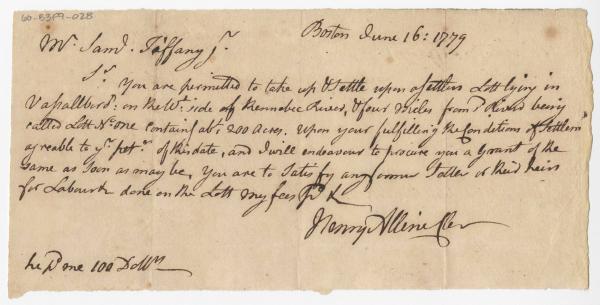 60-83P9-028
Boston June 16: 1779
Mr. Saml. Tiffany jr.
Sr. You are permitted to take up & Settle upon a Settlers Lott lying in
Vassallboro: on the Wt. side of Kennebec River, & four miles from sd. River being
called Lott No. one containg abt. 200 Acres. Upon your fulfilling the Conditions of Settlemt
agreable to yr. pet. of this date, and I will endeavour to procure you a Grant of the
same as soon as may be, You are to Satisfy any former or their heirs
for Labour &c done on the Lott my fees pd. &c
Henry Alline Cler
he pd. me 100 Dollrs